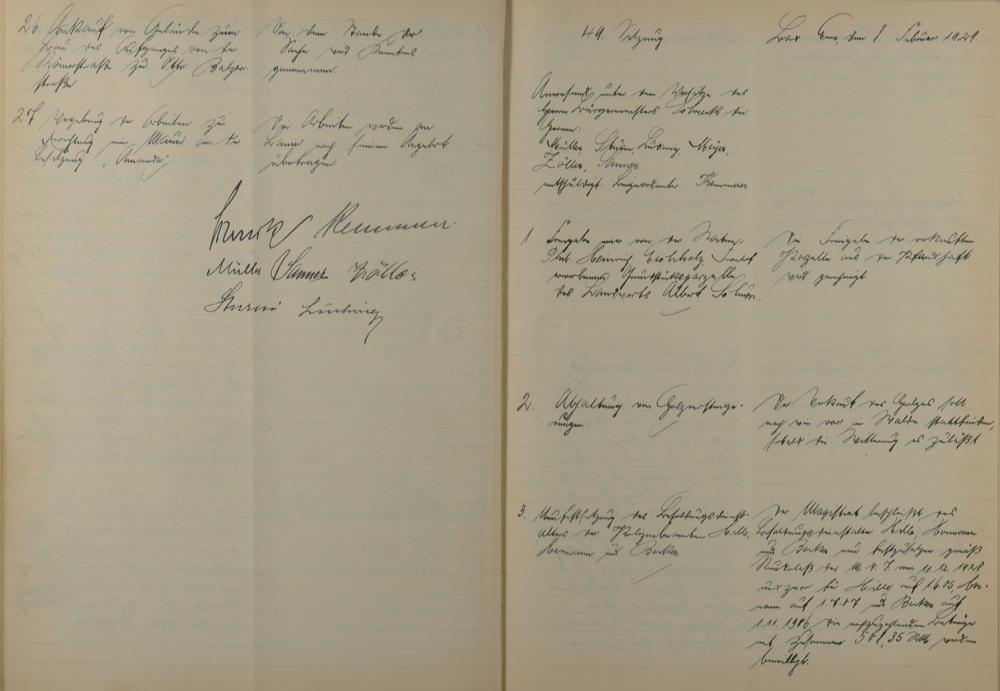 26. Ankauf von Gelände zum
Bau des Aufganges von der
Römerstraße zu Otto Balzer-
straße
Von dem Stande der
Sache wird Kenntnis
genommen.
27. Vergebung der Arbeiten zu
Errichtung einer Mauer an der
Besitzung „Amanda“.
Die Arbeiten werden
nach seinem Angebot
übertragen.
Kemmerer.
Müller Sauer Zöller
Sturm Ludwig
49. Sitzung.
Bad Ems, den 1. Februar 1929.
Anwesend unter dem Vorsitze des
Herrn Bürgermeisters die
Herren:
Müller, Sturm, Ludwig, Meyer,
Zöller,
entschuldigt: Beigeordneter
1. Freigabe einer von der Witwe
Heinrich
erworbenen Grundstücksparzelle
des Landwirts Albert
Die Freigabe der verkauften
Parzelle aus der Pfandschaft
wird genehmigt.
2. Abhaltung von Holzversteige-
rungen.
Der Verkauf des Holzes soll
nach wie vor im Walde stattfinden,
sobald die Witterung es zuläßt
3. Neufestsetzung des Besoldungsdienst-
alters der Polizeibeamten Hille,
Hermann und Becker
Der Magistrat beschließt, das
Besoldungsdienstalter Hille, Hermann
und Becker neu festzusetzen gemäß
Runderlaß des M. d. I. vom 11.12.1928
und zwar für Hille auf Her-
mann auf und Becker auf
1.11.1906. Die nachzuzahlenden Beträge
mit zusammen 581,35 RM werden
bewilligt.